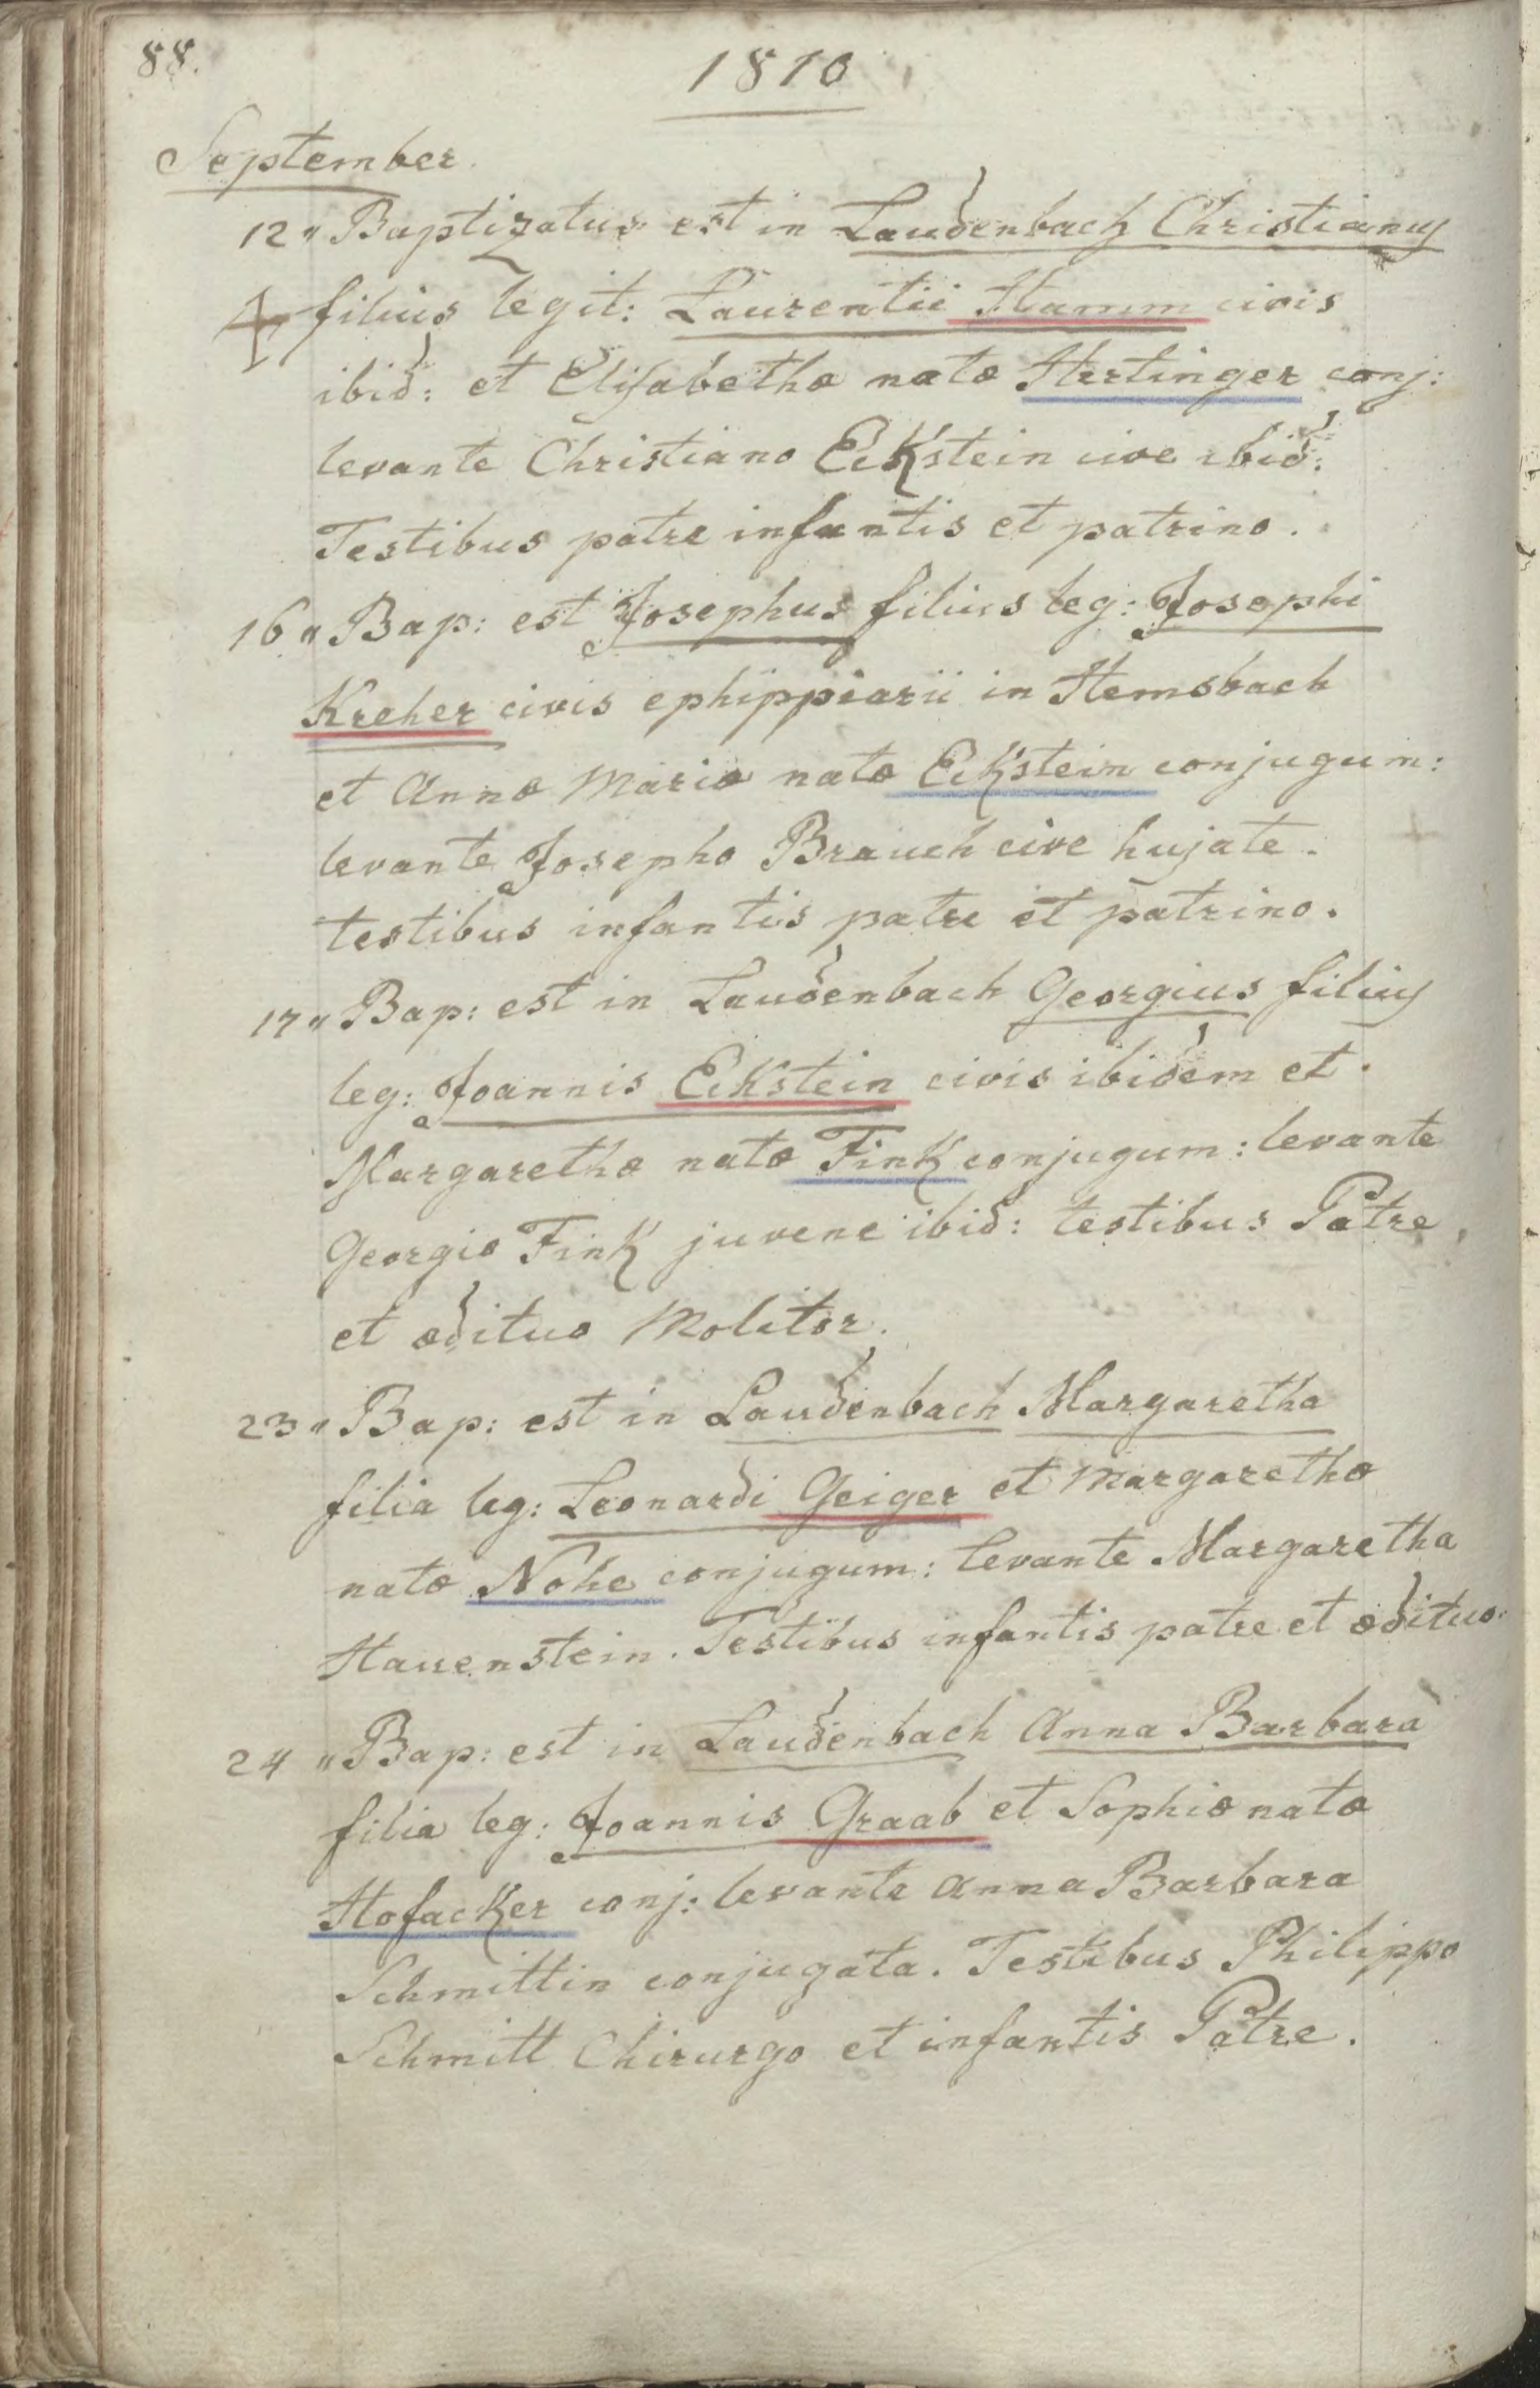 88.
1810
September.
12 „ Baptizatus est in Laudenbach Christianus
filius legit: Laurentii Hamm civis
ibid: et Elisabethæ natæ Hertinger conj:
levante Christiano Eckstein cive ibid:
Testibus patre infantis et patrino.
16 „ Bap: est Josephus filius leg: Josephi
Kreher civis ephippiarii in Hemsbach
et Annæ Mariæ natæ Eckstein conjugum:
levante Josepho Brauch cive hujate.
testibus infantis patre et patrino.
17 „ Bap: est in Laudenbach Georgius filius
leg: Joannis Eckstein civis ibidem et
Margarethæ natæ Fink conjugum: levante
Georgio Fink juvene ibid: testibus Patre
et ædituo Molitor.
23 „ Bap: est in Laudenbach Margaretha
filia leg: Leonardi Geiger et Margarethæ
natæ Nohe conjugum: levante Margaretha
Hauenstein. Testibus infantis patre et ædituo.
24 „ Bap: est in Laudenbach Anna Barbara
filia leg: Joannis Graab et Sophiæ natæ
Hofacker conj: levante Anna Barbara
Schmittin conjugata. Testibus Philippo
Schmitt Chirurgo et infantis Patre.